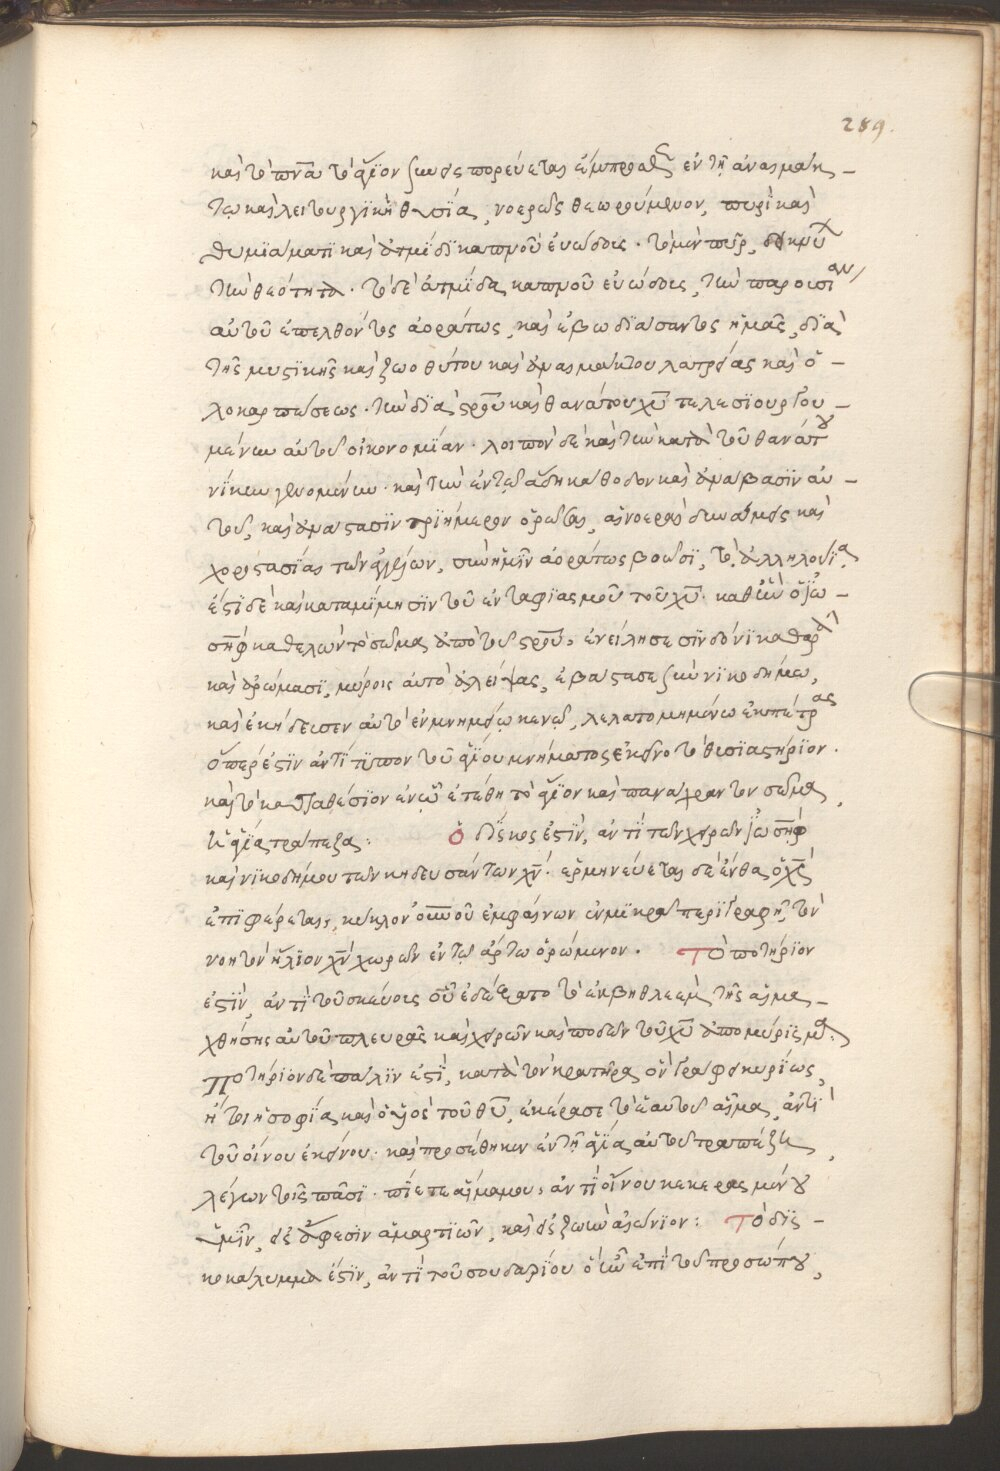 289.
καὶ τὸ πνα τὸ ἅγιον συνεκπορεύεται ἔμπροσθεν ἐν τῇ ἀναιμάκ-
τω καὶ λειτουργικῇ θυσία, νοερῶς θεωρούμενον, πυρὶ καὶ
θυμιάματι καὶ ἀτμίδι καπνοῦ εὐώδους. τὸ μὲν πῦρ, δεικνῦον
τὴν θεότητα. τὸ δὲ ἀτμίδα καπνοῦ εὐώδους, τὴν παρουσίαν
αὐτοῦ ἐπελθόντος ἀοράτως, καὶ εὐωδιάσαντος ἡμᾶς, διὰ
τῆς μυστικῆς καὶ ζωοθύτου καὶ ἀναιμάκτου λατρείας καὶ ὁ-
λοκαρπώσεως. τὴν διὰ στροῦ καὶ θανάτου χῦ τελεσιουργου-
μένην αὐτοῦ οἰκονομίαν. λοιπὸν δὲ καὶ τὴν κατὰ τοῦ θανάτου
νίκην γενομένην. καὶ τὴν ἐν τῶ ἅδη κάθοδον καὶ ἀνάβασιν αὐ-
τοῦ, καὶ ἀνάστασιν τριήμερον ὁρῶσαι, αἱ νοεραὶ δυνάμεις καὶ
χοροστασίαι τῶν ἀγγέλων, σὺν ἡμῖν ἀοράτως βοῶσι, τὸ ἀλληλούϊα.
ἔστι δὲ καὶ κατὰ μίμησιν τοῦ ἐνταφιασμοῦ τοῦ χῦ. καθ' ὃν ὁ ἰω-
σὴφ καθελὼν τὸ σῶμα ἀπὸ τοῦ στροῦ, ἐνείλησε σινδόνι καθαρᾶ.
καὶ ἀρώμασι, μύροις αὐτὸ ἀλείψας, ἐβάστασε σὺν νικοδήμω,
καὶ ἐκήδευσεν αὐτὸ ἐν μνημείω κενῶ, λελατομημένω ἐκ πέτρας
ὅπερ ἐστὶν ἀντίτυπον τοῦ ἁγίου μνήματος ἐκείνο τὸ θυσιαστήριον.
καὶ τὸ καταθέσιον ἐν ὧ ἐτέθη τὸ ἅγιον καὶ πανάχραντον σῶμα,
ἡ ἁγία τράπεζα: Ὁ δίσκος ἐστὶν, ἀντὶ τῶν χειρῶν ἰωσὴφ
καὶ νικοδήμου τῶν κηδευσάντων χν. ἑρμηνεύεται δὲ ἔνθα ὁ χς
ἐπιφέρεται, κύκλον οὐνοῦ ἐμφαίνων ἐν μικρᾶ περιγραφῆ, τὸν
νοητὸν ἥλιον χν χωρῶν ἐν τῶ ἄρτω ὁρώμενον. Τὸ ποτήριον
ἐστὶν, ἀντὶ τοῦ σκεύους οὗ ἐδέξατο τὸ ἐκβηθλεὲμ τῆς αἱμα-
χθήσης αὐτοῦ πλευρᾶς καὶ χειρῶν καὶ ποδῶν τοῦ χῦ ἀπομύρισμα.
Ποτήριον δὲ πάλιν ἐστὶ, κατὰ τὸν κρατῆρα ὃν γράφει κυρίως,
ἤτοι ἡ σοφία καὶ ὁ υἱὸς τοῦ θῦ, ἐκέρασε τὸ ἑαυτοῦ αἷμα, ἀντὶ
τοῦ οἴνου ἐκείνου. καὶ προσέθηκεν ἐν τῇ ἁγία αὐτοῦ τραπέζη,
λέγων τοῖς πᾶσι. πίετε αἷμα μου, ἀντὶ οἴνου κεκερασμένου
ὑμῖν, εἰς ἄφεσιν ἁμαρτιῶν, καὶ εἰς ζωὴν αἰώνιον: Τὸ δισ-
κοκάλυμμα ἐστὶν, ἀντὶ τοῦ σουδαρίου ὃ ἦν ἐπὶ τοῦ προσώπου,